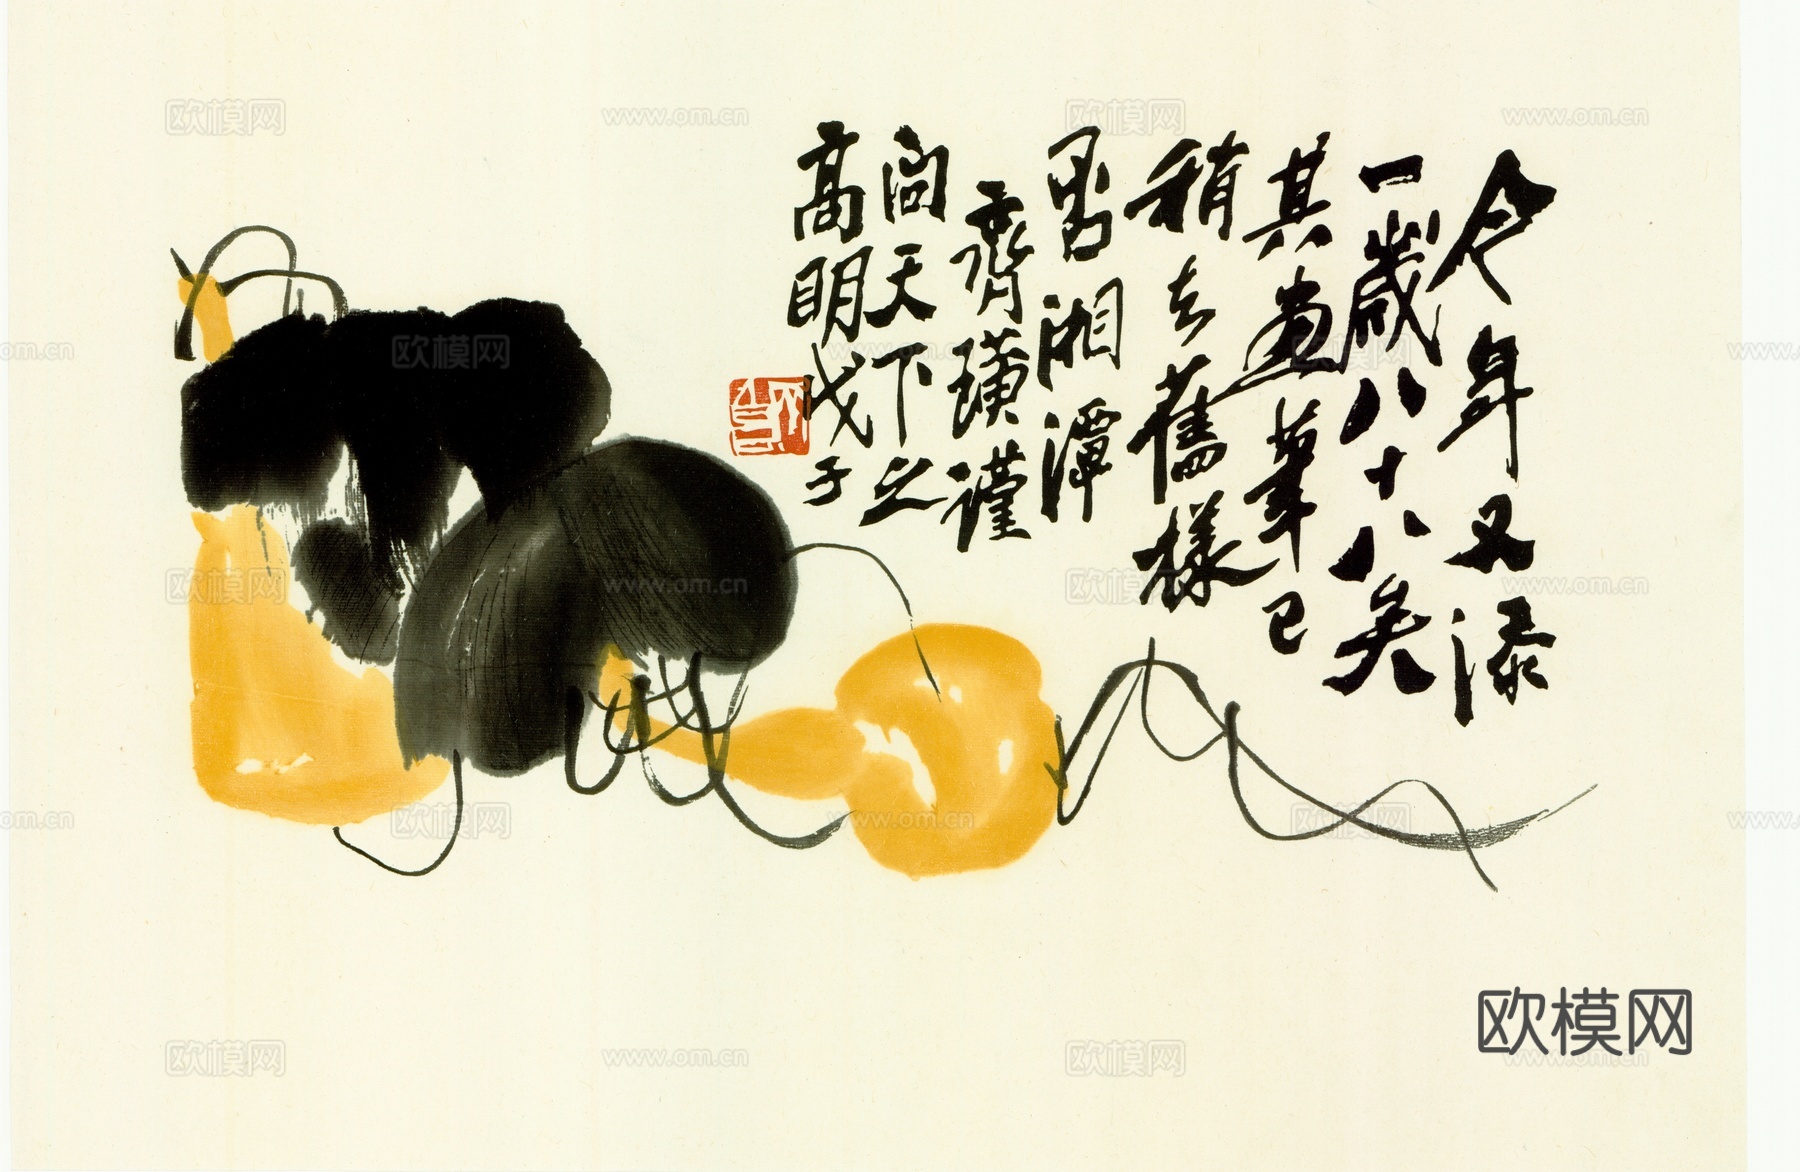 今年又添
一歲八十八矣
其畫筆已
稍去舊樣
湘潭
齊璜謹
問天下之
高明戊子
欧模网
www.om.cn